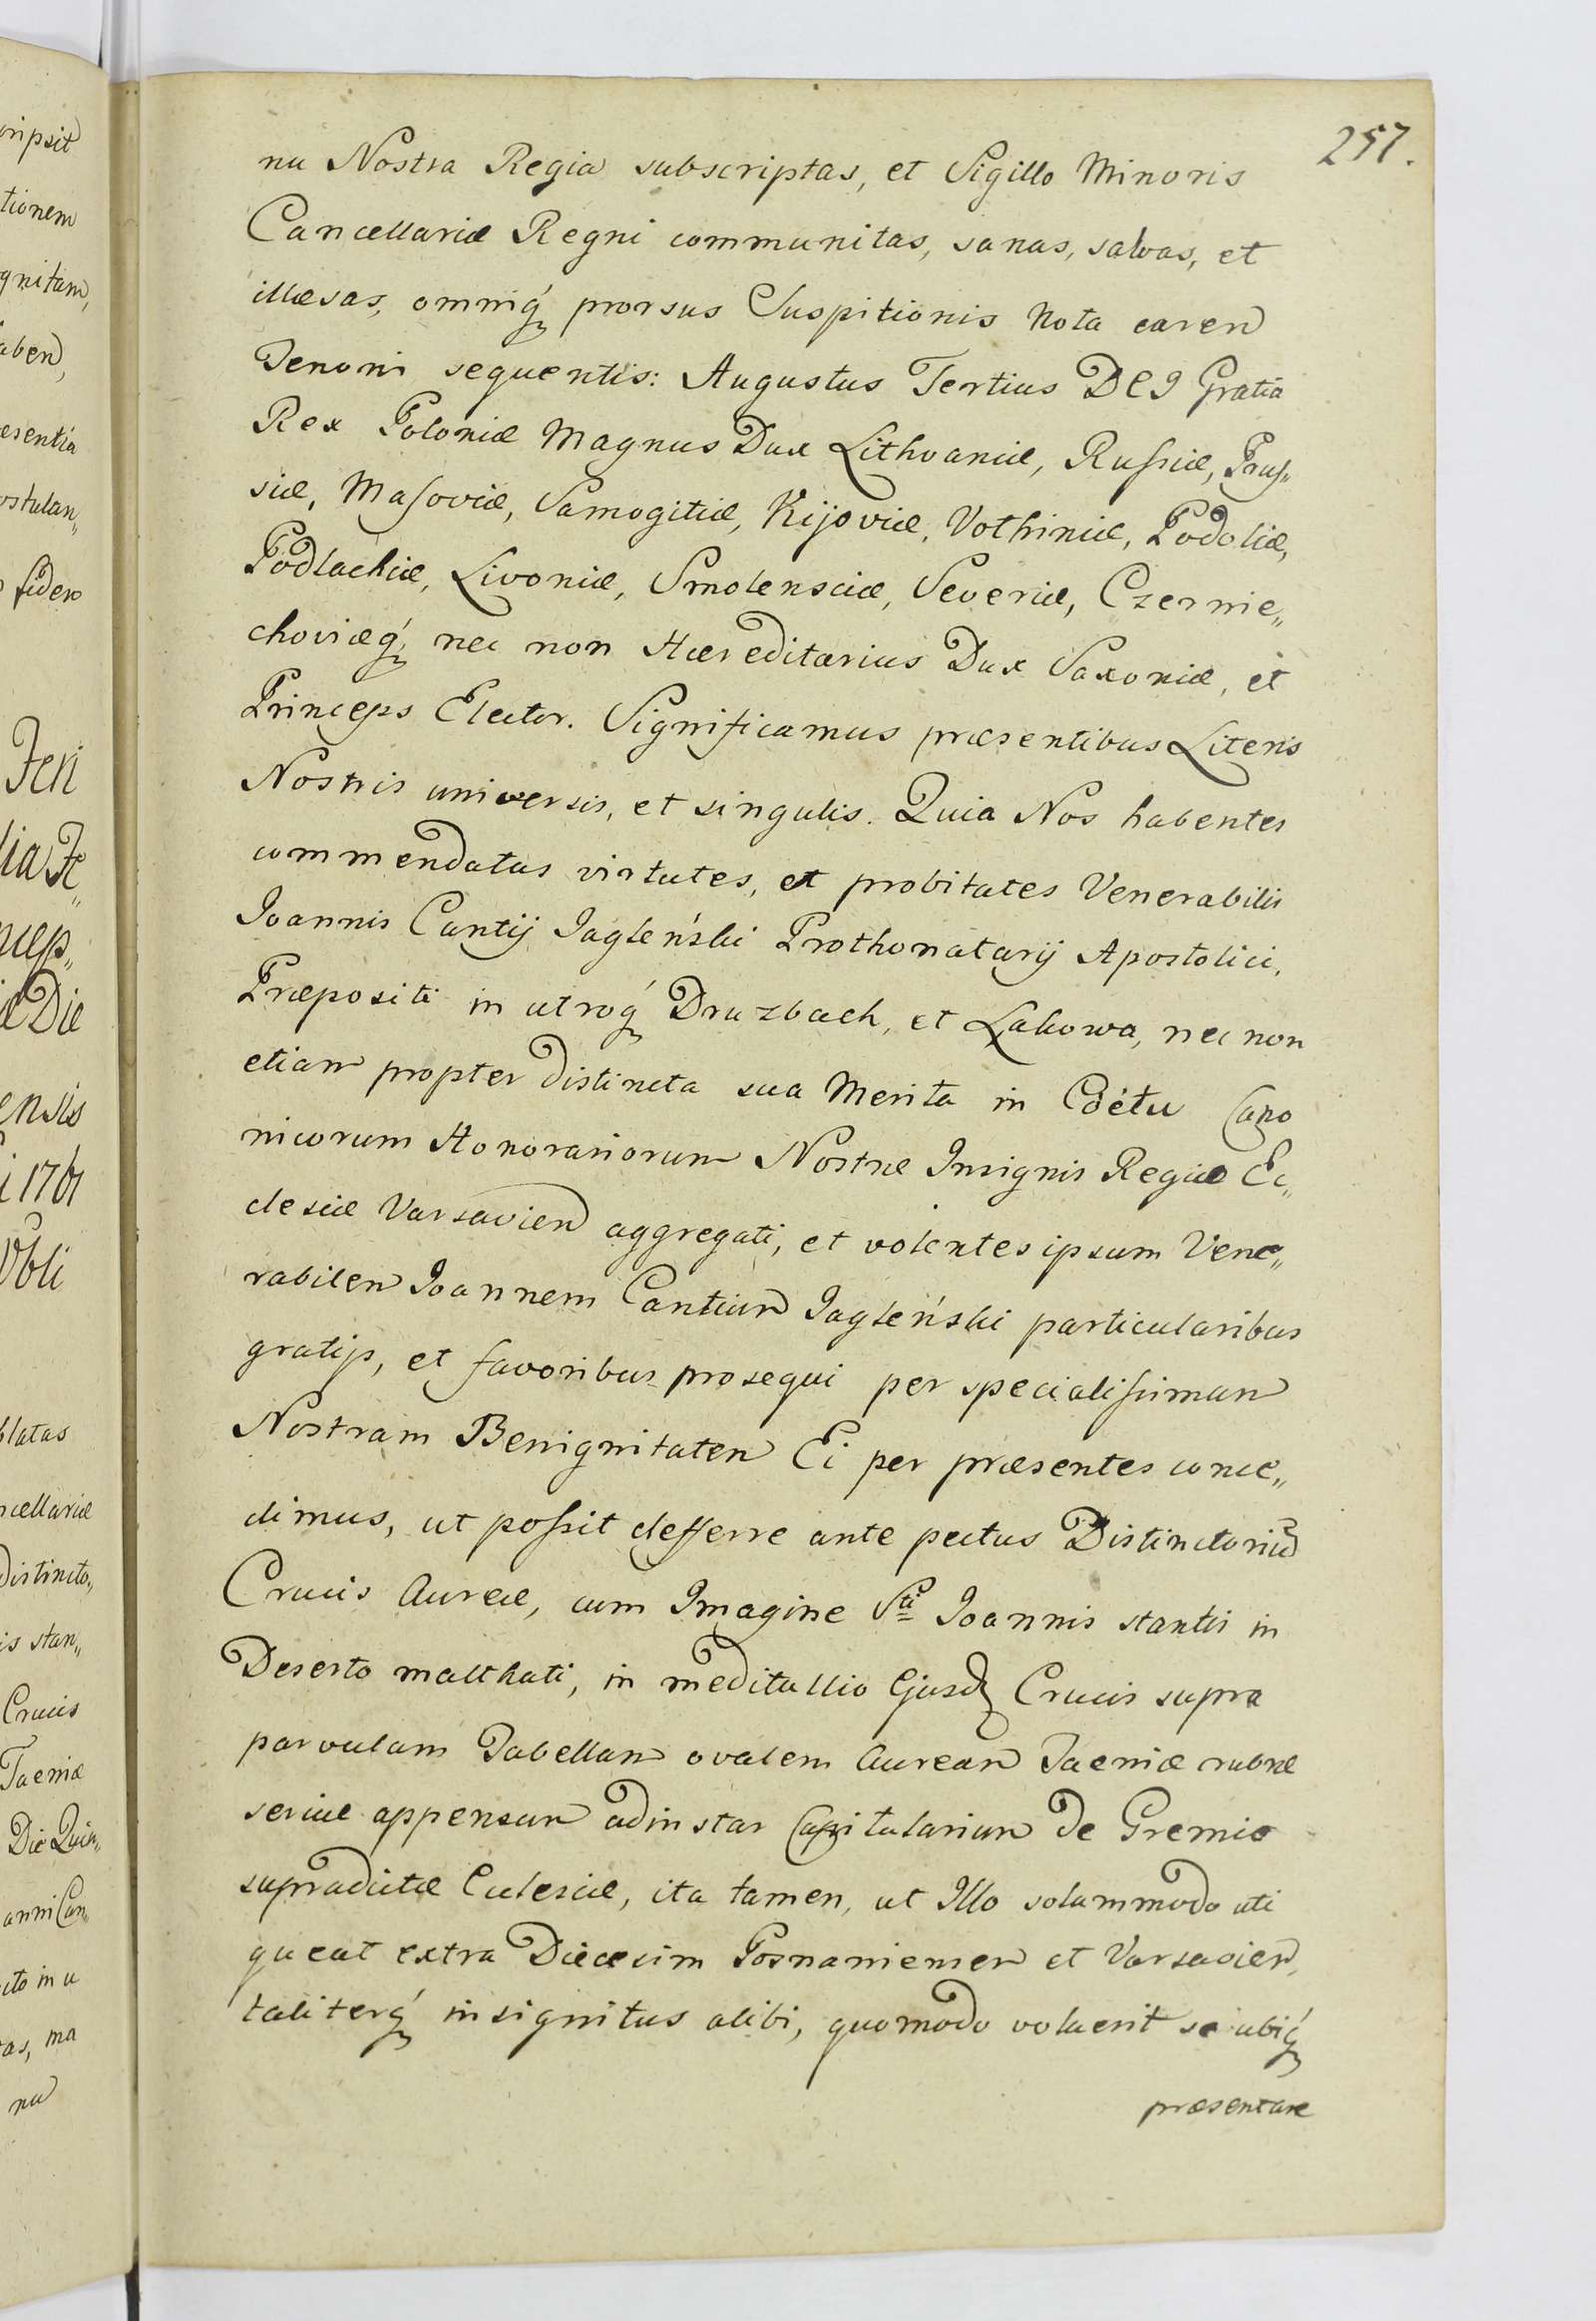 257.
nu Nostra Regia subscriptas, et Sigillo Minoris
Cancellariæ Regni communitas, sanas, salvas, et
illæsas, omniq́ prorsus Suspitionis Nota caren
Tenoris sequentis: Augustus Tertius DEI Gratia
Rex Poloniæ Magnus Dux Lithvaniæ, Rußiæ, Pruß„
siæ, Masoviæ, Samogitiæ, Kijoviæ, Volhiniæ, Podoliæ,
Podlachiæ, Livoniæ, Smolensciæ, Severiæ, Czernie„
choviæq́, nec non Hæreditarius Dux Saxoniæ, et
Princeps Elector. Significamus præsentibus Literis
Nostris universis, et singulis. Quia Nos habentes
commendatas virtutes, et probitates Venerabilis
Joannis Cantij Jagleński Prothonatarij Apostolici,
Præpositi in utroq́ Druzbach, et Lakowa, nec non
etiam propter distincta sua Merita in Cœtu Cano
nicorum Honorariorum Nostræ Insignis Regiæ Ec„
clesiæ Varsavien aggregati, et volentes ipsum Vene„
rabilem Joannem Cantium Jagleński particularibus
gratijs, et favoribus prosequi per specialißimam
Nostram Benignitatem Ei per præsentes conce„
dimus, ut poßit defferre ante pectus Distinctorium
Crucis Aureæ, cum Imagine Sti Joannis stantis in
Deserto malthati, in meditullio Ejusd Crucis supra
parvulam Tabellam ovalem Auream Taeniæ rubræ
sericæ appensum adinstar Capitularium de Gremio
supradictæ Ecclesiæ, ita tamen, ut Illo solummodo uti
queat extra Diæcesim Posnaniensem et Varsavien,
taliterq́ insignitus alibi, quomodo voluerit se ubiq́
præsentare
ripsit
tionem
gnitam,
aben,
esentia
ostulan„
fidem
Die
ensis
i 1761
blatas
ncellariæ
Distincto„
is stan„
Crucis
Taeniæ
Die Quin„
anni Can„
ito in u
as, ma
nu